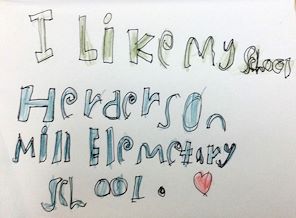 I Like My School
Herderson
Mill Elemetary
School.